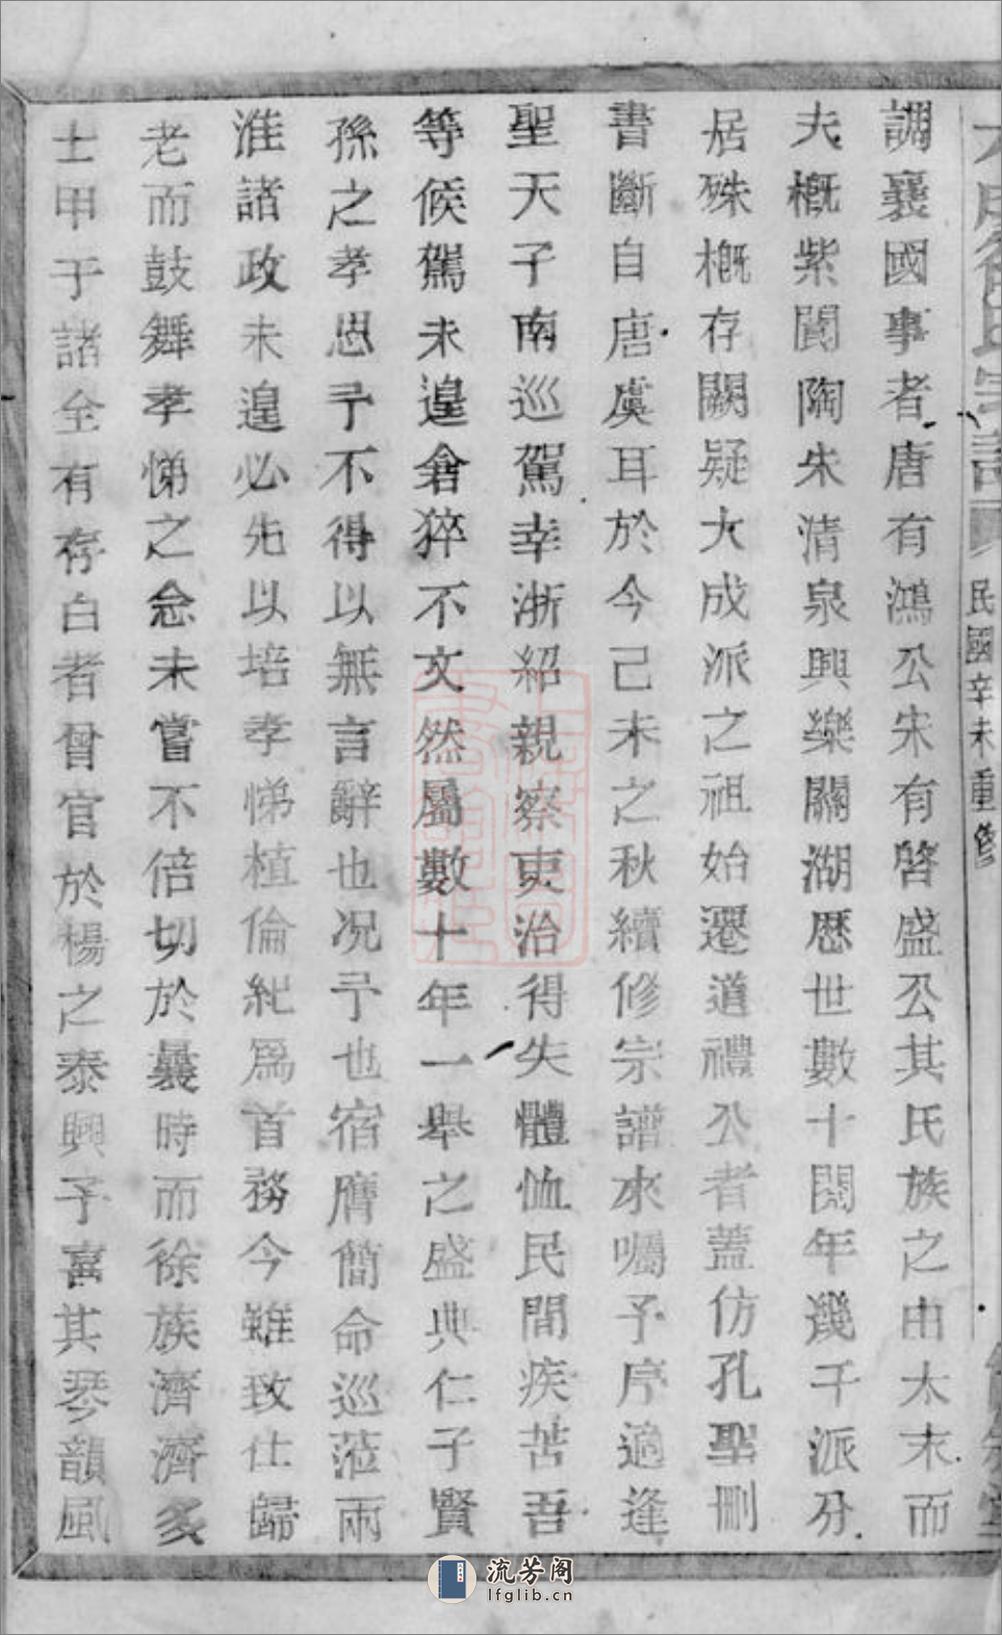 民國辛未重修
調襄國事者唐有鴻公宋有啓盛公其氏族之由太末而
夫概紫閬陶朱清泉興樂關湖歷世數十閱年幾千派分
居殊概存闕疑大成派之祖始遷道禮公者蓋仿孔聖刪
書斷自唐虞耳於今己未之秋續修宗譜來囑予序適逢
聖天子南巡駕幸浙紹親察吏治得失體恤民間疾苦吾
等候駕未遑倉猝不文然屬數十年一舉之盛典仁子賢
孫之孝思予不得以無言辭也况予也宿膺簡命巡蒞兩
淮諸政未遑必先以培孝悌植倫紀爲首務今雖致仕歸
老而鼓舞孝悌之念未嘗不倍切於曩時而徐族濟濟多
士甲于諸全有存白者曾官於楊之泰興予喜其琴韻風
流芳阁
lfglib.cn